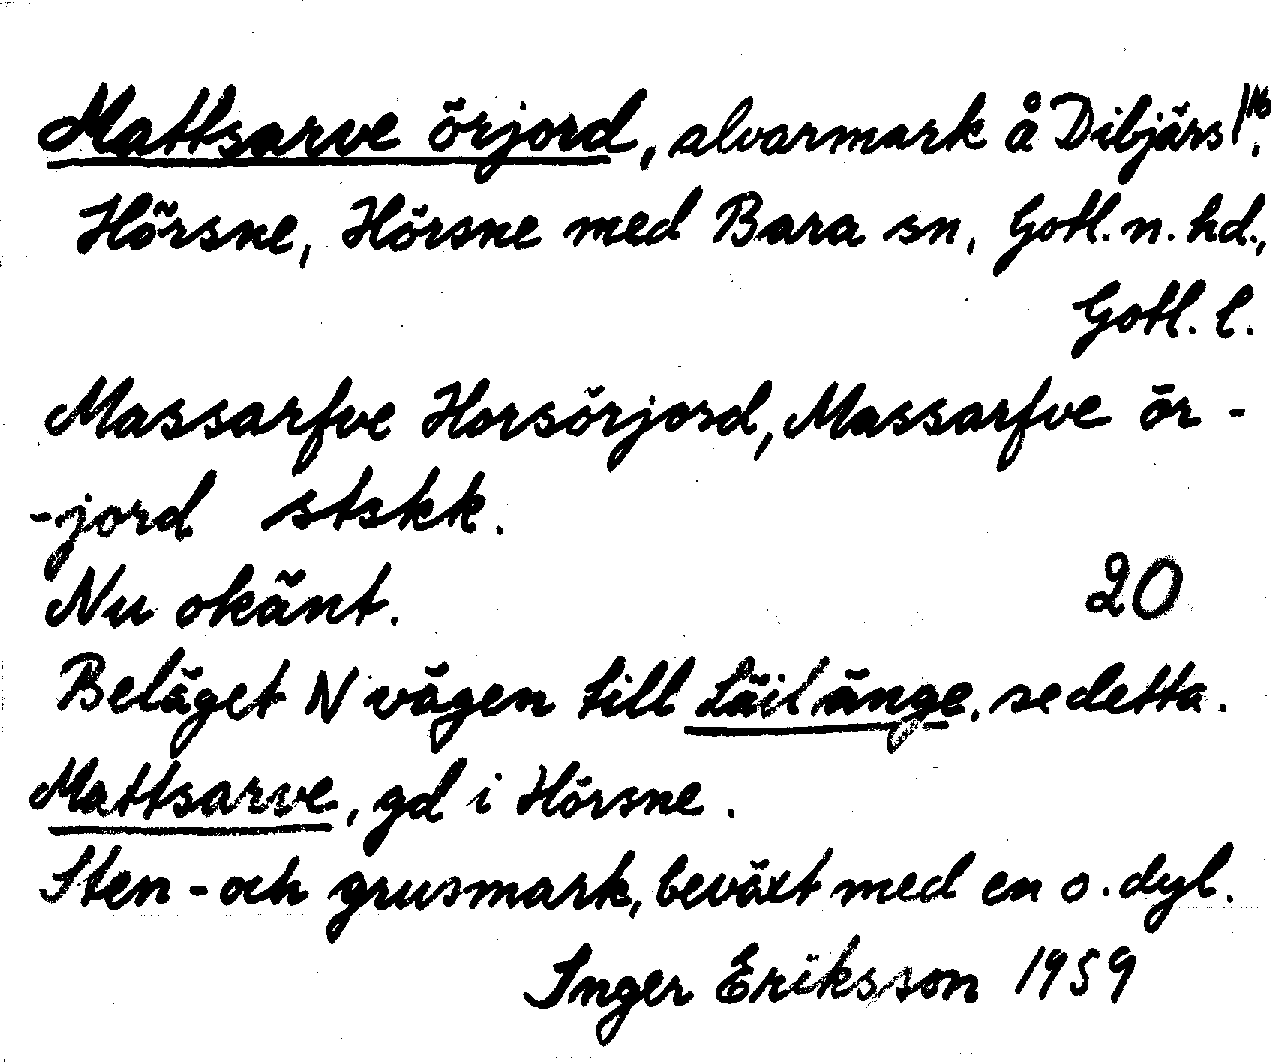 Mattsarve örjord, alvarmark å Dibjärs 1/16.
Hörsne, Hörsne med Bara sn, Gotl. n. hd.,
Gotl. l.
Massarfve Horsörjord, Massarfve ör-
-jord stskk.
Nu okänt. 20
Beläget N vägen till Läiländge, se detta.
Mattsarve, gd i Hörsne.
Sten- och grusmark, beväxt med en o. dyl.
Inger Eriksson 1959